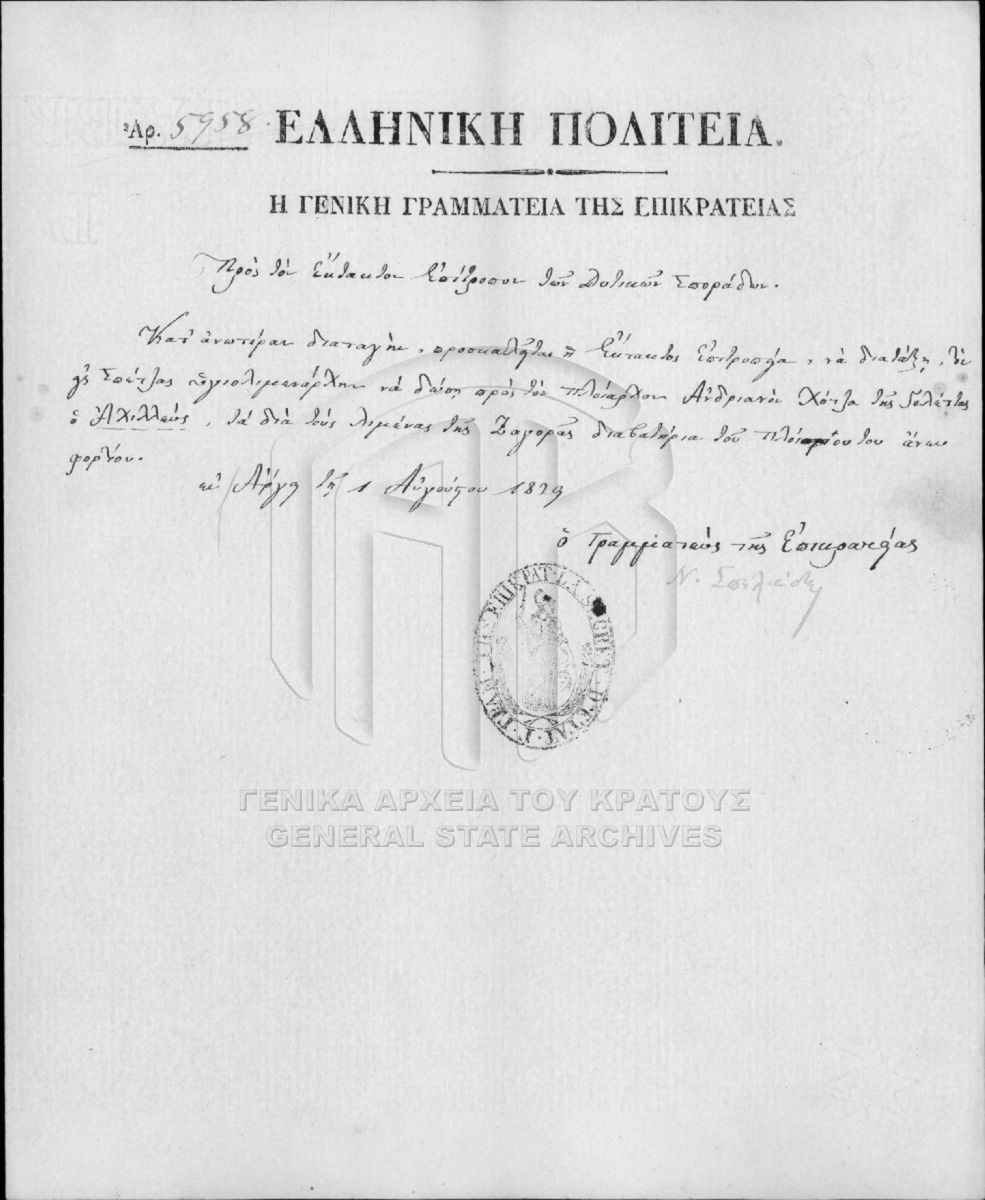 Ἀρ. 5958. ΕΛΛΗΝΙΚΗ ΠΟΛΙΤΕΙΑ.
Η ΓΕΝΙΚΗ ΓΡΑΜΜΑΤΕΙΑ ΤΗΣ ΕΠΙΚΡΑΤΕΙΑΣ
Πρὸς τὸν Ἔκτακτον Ἐπίτροπον τῶν Δυτικῶν Σποράδων.
Κατ' ἀνωτέραν διαταγὴν, προσκαλεῖται ἡ Ἔκτακτος Ἐπιτροπεία, νὰ διατάξῃ, τὸν
εἰς Σπέτζας ὑγιολιμενάρχην νὰ δώσῃ πρὸς τὸν πλοίαρχον Ἀνδριανὸν Χότζα τῆς Γολέττας
ὁ Ἀχιλλεὺς, τὰ διὰ τοὺς λιμένας τῆς Ζαγορᾶς διαβατήρια τοῦ πλοίου του ἄνευ
φορτίου.
ἐν Ἄργει τῇ 1 Αὐγούστου 1829
ὁ Γραμματεὺς τῆς Ἐπικρατείας
Ν. Σπηλιάδης
Γ. ΓΡΑΜ. ΤΗΣ ΕΠΙΚΡΑΤ. LA SECRET. D'ETAT
ΓΕΝΙΚΑ ΑΡΧΕΙΑ ΤΟΥ ΚΡΑΤΟΥΣ
GENERAL STATE ARCHIVES